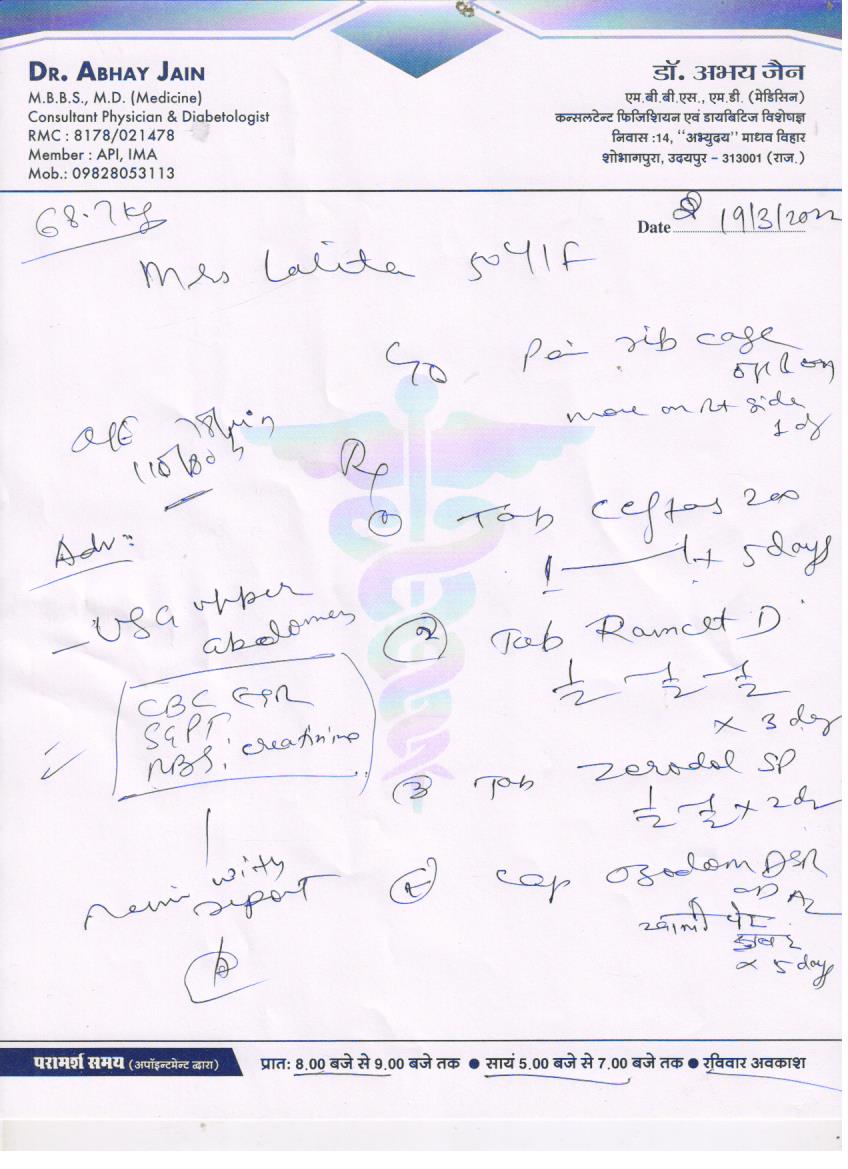 DR. ABHAY JAIN
M.B.B.S., M.D. (Medicine)
Consultant Physician & Diabetologist
RMC : 8178/021478
Member : API, IMA
Mob.: 09828053113
डॉ. अभय जैन
एम.बी.बी.एस., एम.डी. (मेडिसिन)
कन्सलटेन्ट फिजिशियन एवं डायबिटिज विशेषज्ञ
निवास :14, ‘‘अभ्युदय’’ माधव विहार
शोभागपुरा, उदयपुर – 313001 (राज.)
68.7kg
Date 19/3/2022
Mrs Lalita 50Y/F
C/o Pain rib cage
more on Rt side
1 dy
O/E 78/min
110/80
Rx
① Tab Ceftas 200
1 — 1 x 5 days
Adv:
- USG upper
abdomen
② Tab Ramcet D
1/2 - 1/2 - 1/2
x 3 dy
CBC ESR
SGPT
RBS, creatinine
③ Tab Zerodol SP
1/2 - 1/2 x 2 dy
④ Cap Ozodom DSR
खाली पेट
x 5 day
with
report
परामर्श समय (अपॉइन्टमेन्ट द्वारा)
प्रात: 8.00 बजे से 9.00 बजे तक ● सायं 5.00 बजे से 7.00 बजे तक ● रविवार अवकाश